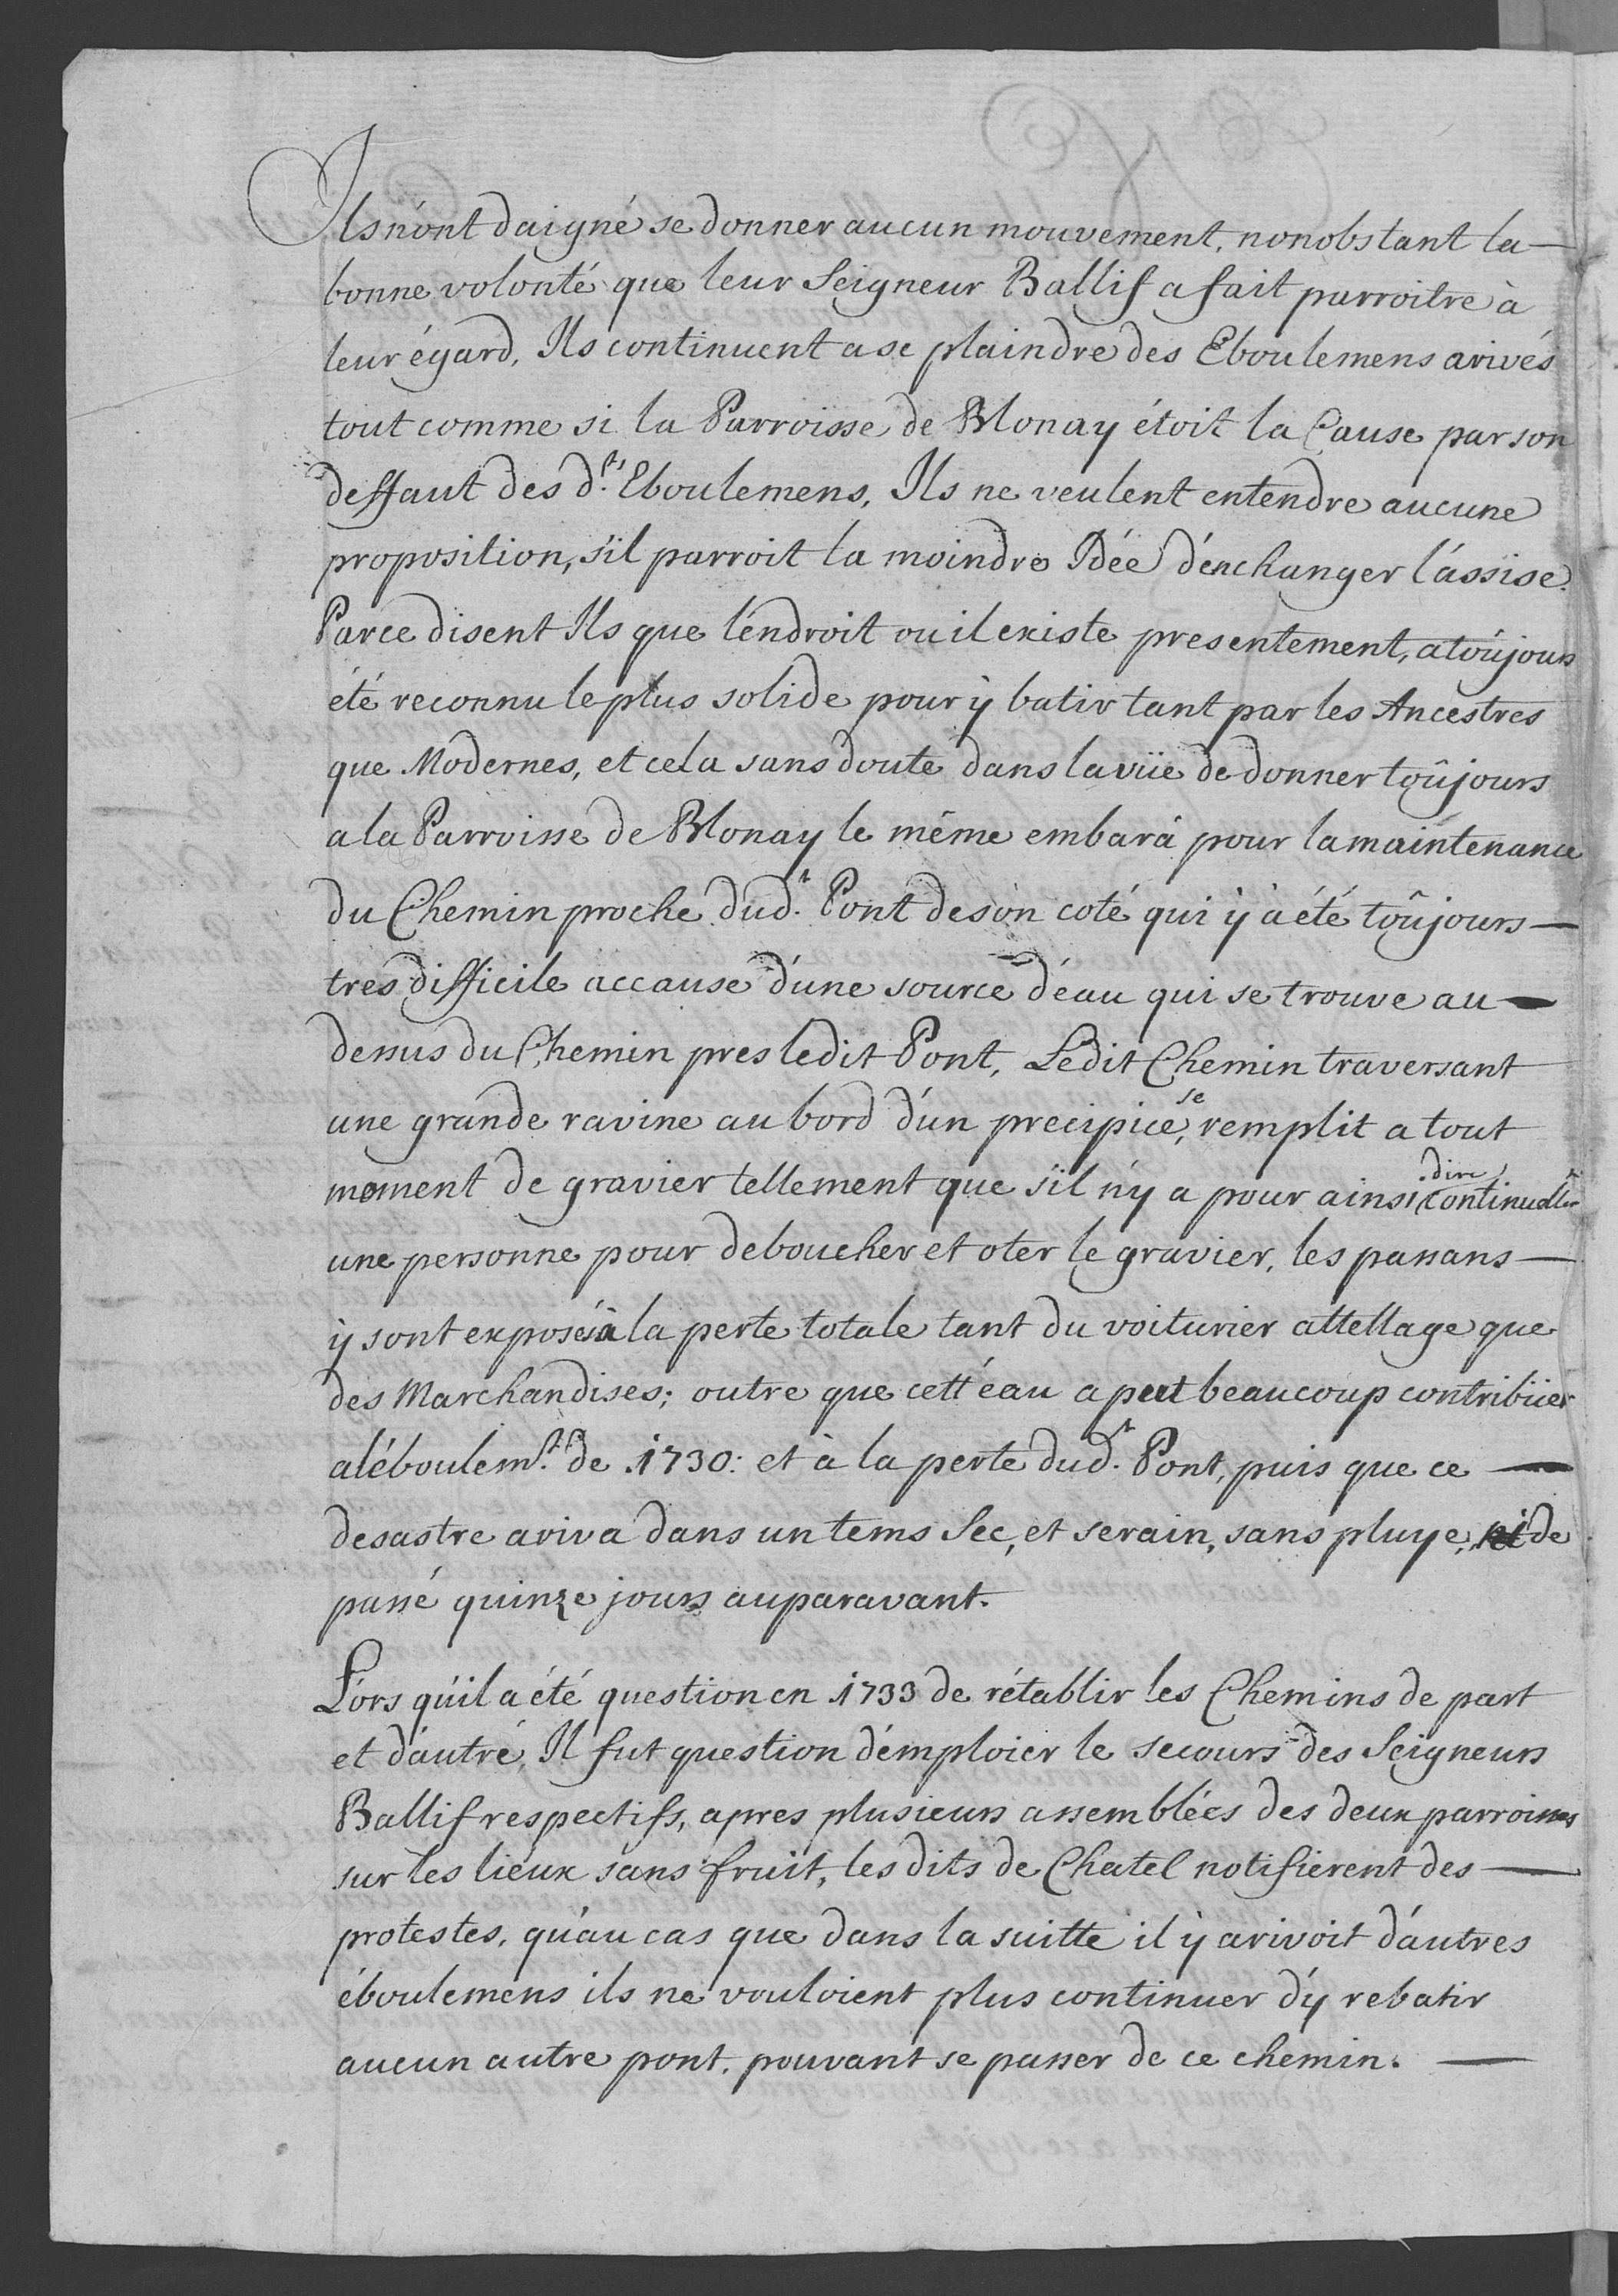 Ils n'ont daigné se donner aucun mouvement, nonobstant la —
bonne volonté que leur Seigneur Ballif a fait parroitre à
leur égard, Ils continuent a se plaindre des Eboulemens arivés
tout comme si la Parroisse de Blonay étoit la Cause par son
deffaut des d.ts Eboulemens, Ils ne veulent entendre aucune
proposition, s'il parroit la moindre Idée d'enchanger l'assise.
Parce disent Ils que l'endroit ou il existe presentement, a toûjours
été reconnu le plus solide pour ÿ batir tant par les Ancestres
que Modernes, et cela sans doute dans la vüe de donner toûjours
a la Parroisse de Blonay le même embarà pour la maintenance
du Chemin proche dud.t Pont de son coté qui ÿ à été toûjours —
tres difficile accause d'une source d'eau qui se trouve au —
dessus du Chemin pres ledit Pont, Ledit Chemin traversant
une grande ravine au bord d'un precipice, se remplit a tout
moment de gravier tellement que s'il n'y a pour ainsi dire continuellem.t
une personne pour deboucher et oter le gravier, les passans —
ÿ sont exposés à la perte totale tant du voiturier attellage que
des Marchandises; outre que cett'éau a peut beaucoup contribüer
a l'éboulem.t de 1730: et à la perte dud.t Pont, puis que ce —
desastre ariva dans un tems Sec, et serain, sans pluye, ni de
passé quinze jours auparavant.
Lors qu'il a été question en 1733 de rétablir les Chemins de part
et d'autre, Il fut question d'emploier le secours des Seigneurs
Ballif respectifs, apres plusieurs assemblées des deux parroisses
sur les lieux sans fruit, les dits de Chatel notifierent des —
protestes, qu'au cas que dans la suitte il ÿ arivoit d'autres
éboulemens ils ne vouloient plus continuer d'y rebatir
aucun autre pont, pouvant se passer de ce chemin. —